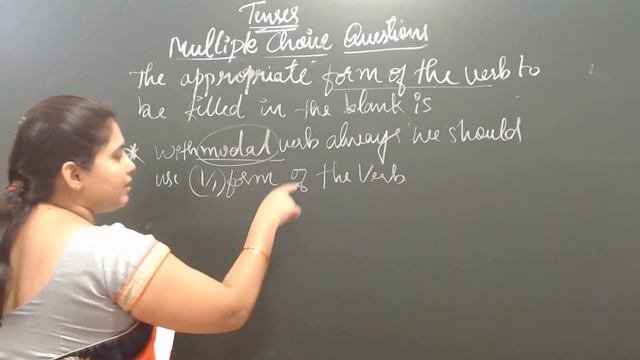 Tenses
Multiple Choice Questions
The appropriate form of the verb to
be filled in the blank is
* with modal verb always we should
use (V₁) form of the Verb